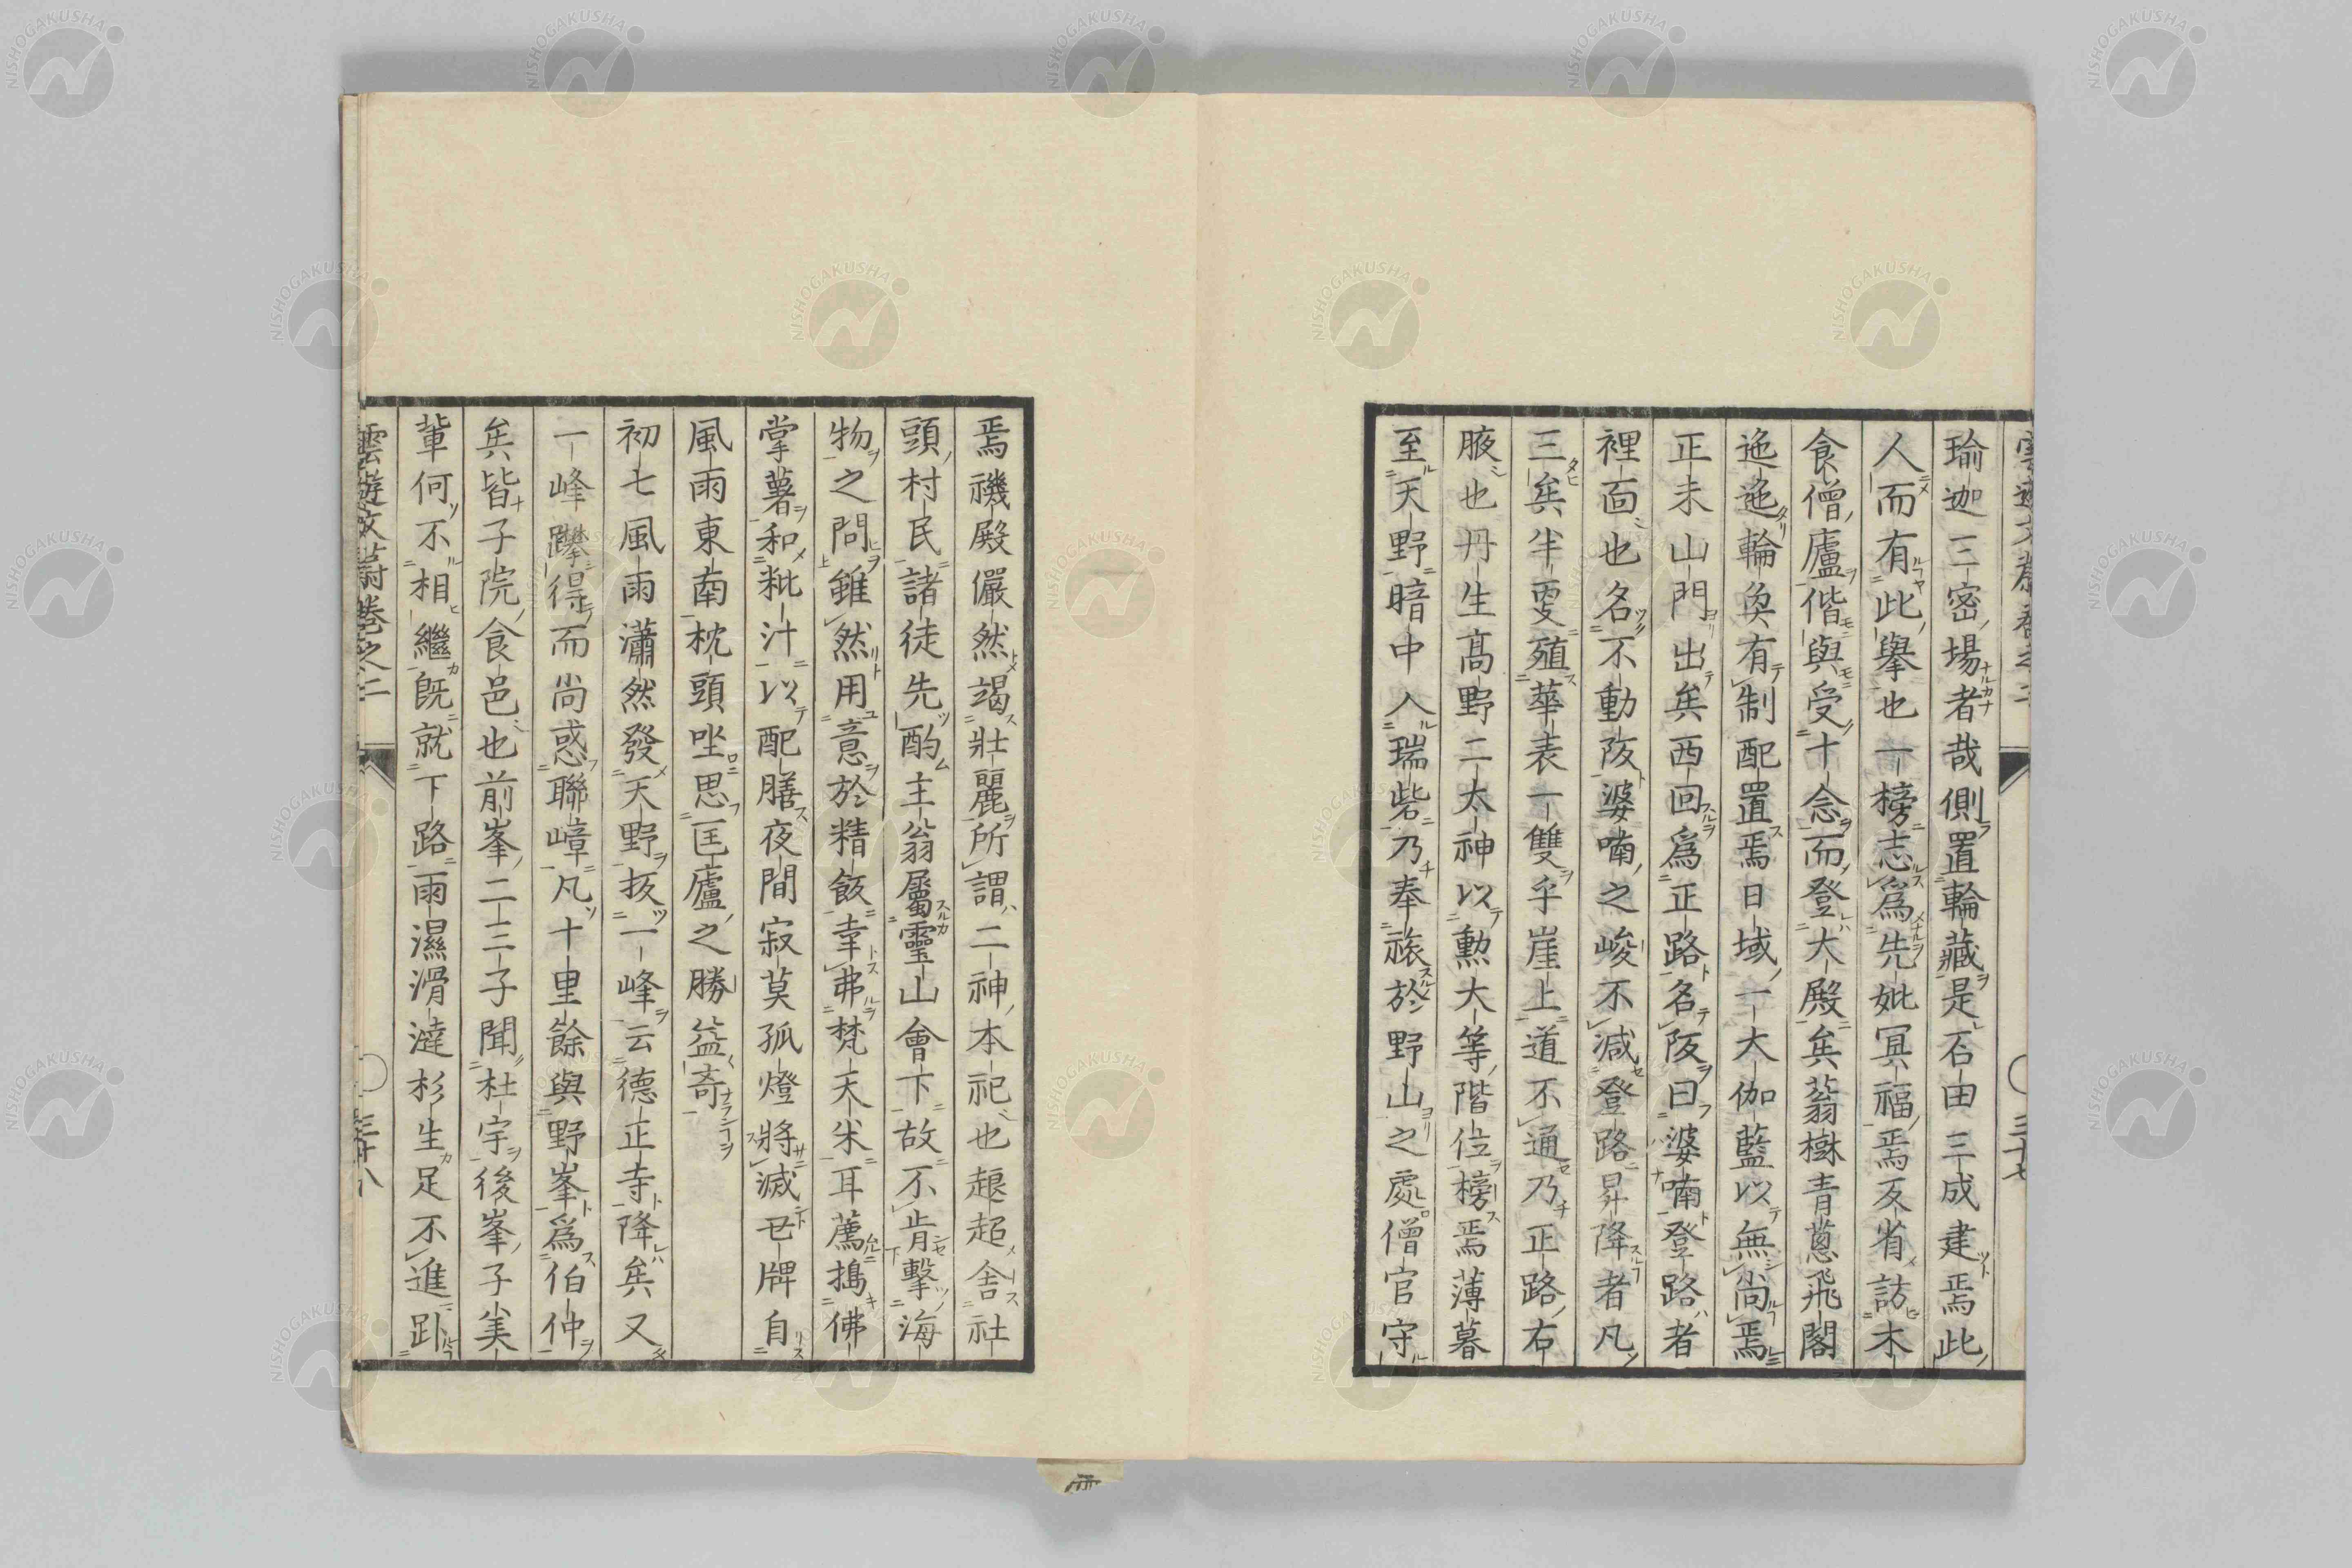 瑜迦三密場者哉側置輪藏是石田三成建焉此
人而有此擧也一榜志爲先妣冥福焉又省訪木
食僧廬偕與受十念而登大殿矣蓊樹青蔥飛閣
迤迤輪奐有制配置焉日域一大伽藍以無尚焉
正未山門出矣西回爲正路名阪曰婆喃登路者
裡面也名不動阪婆喃之峻不減登路昇降者凡
三矣半雯殖華表一雙乎崖上道不通乃正路右
腋也丹生高野二太神以勲大等階位榜焉薄暮
至天野暗中入瑞砦乃奉祿於野山之處僧官守
焉磯殿儼然竭壯麗所謂二神本祀也趨超舍社
頭村民諸徒先酌主翁屬靈山會下故不肯擊海
物之問雖然用意於精飯幸弗梵天米耳薦搗佛
掌薯和粃汁以配膳夜間寂莫孤燈將滅屯牌自
風雨東南枕頭坐思匡廬之勝益奇
初七風雨瀟然發天野扳一峰云德正寺降矣又
一峰躋得而尚惑聯嶂凡十里餘與野峯爲伯仲
矣皆子院食邑也前峯二三子聞杜宇後峯子美
輩何不相繼既就下路雨濕滑澾杉生足不進趴
雲遊文蔚卷之二
三十八
三十七